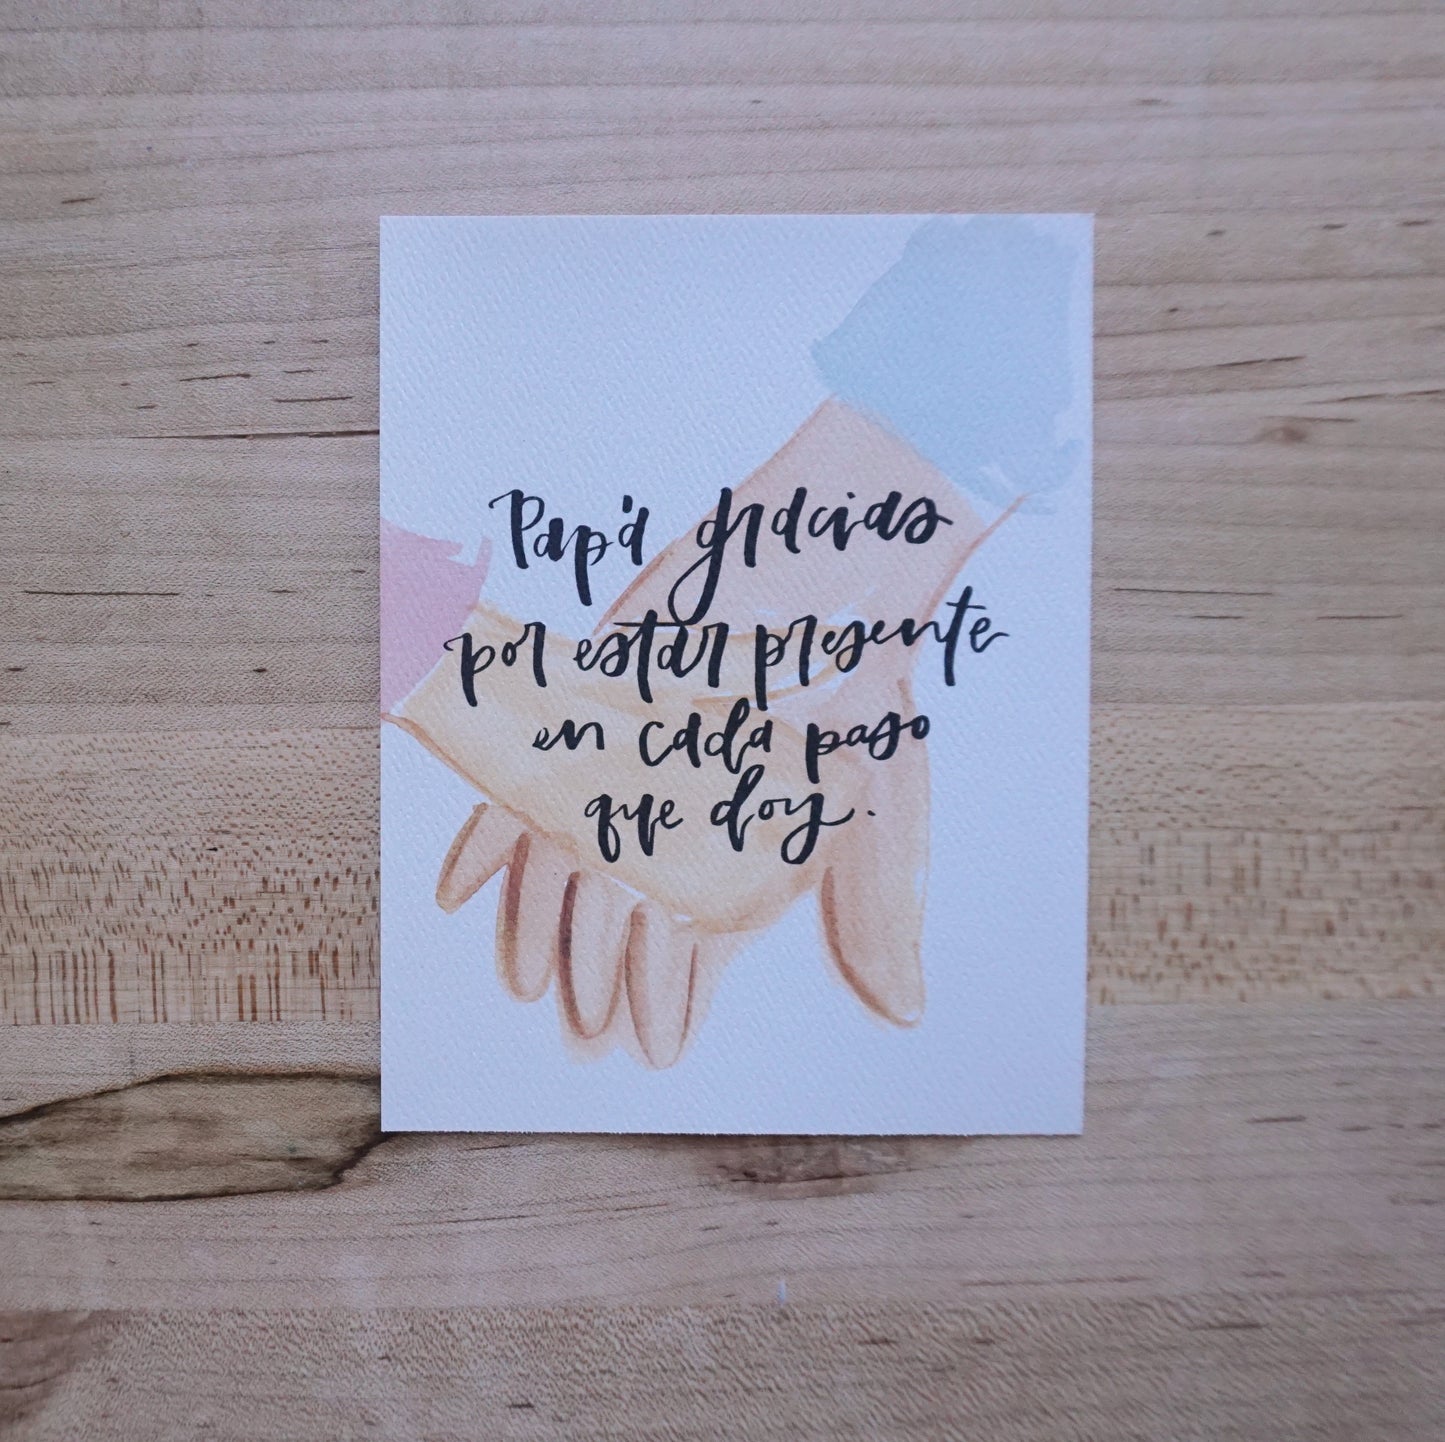 Papá gracias
por estar presente
en cada paso
que doy.